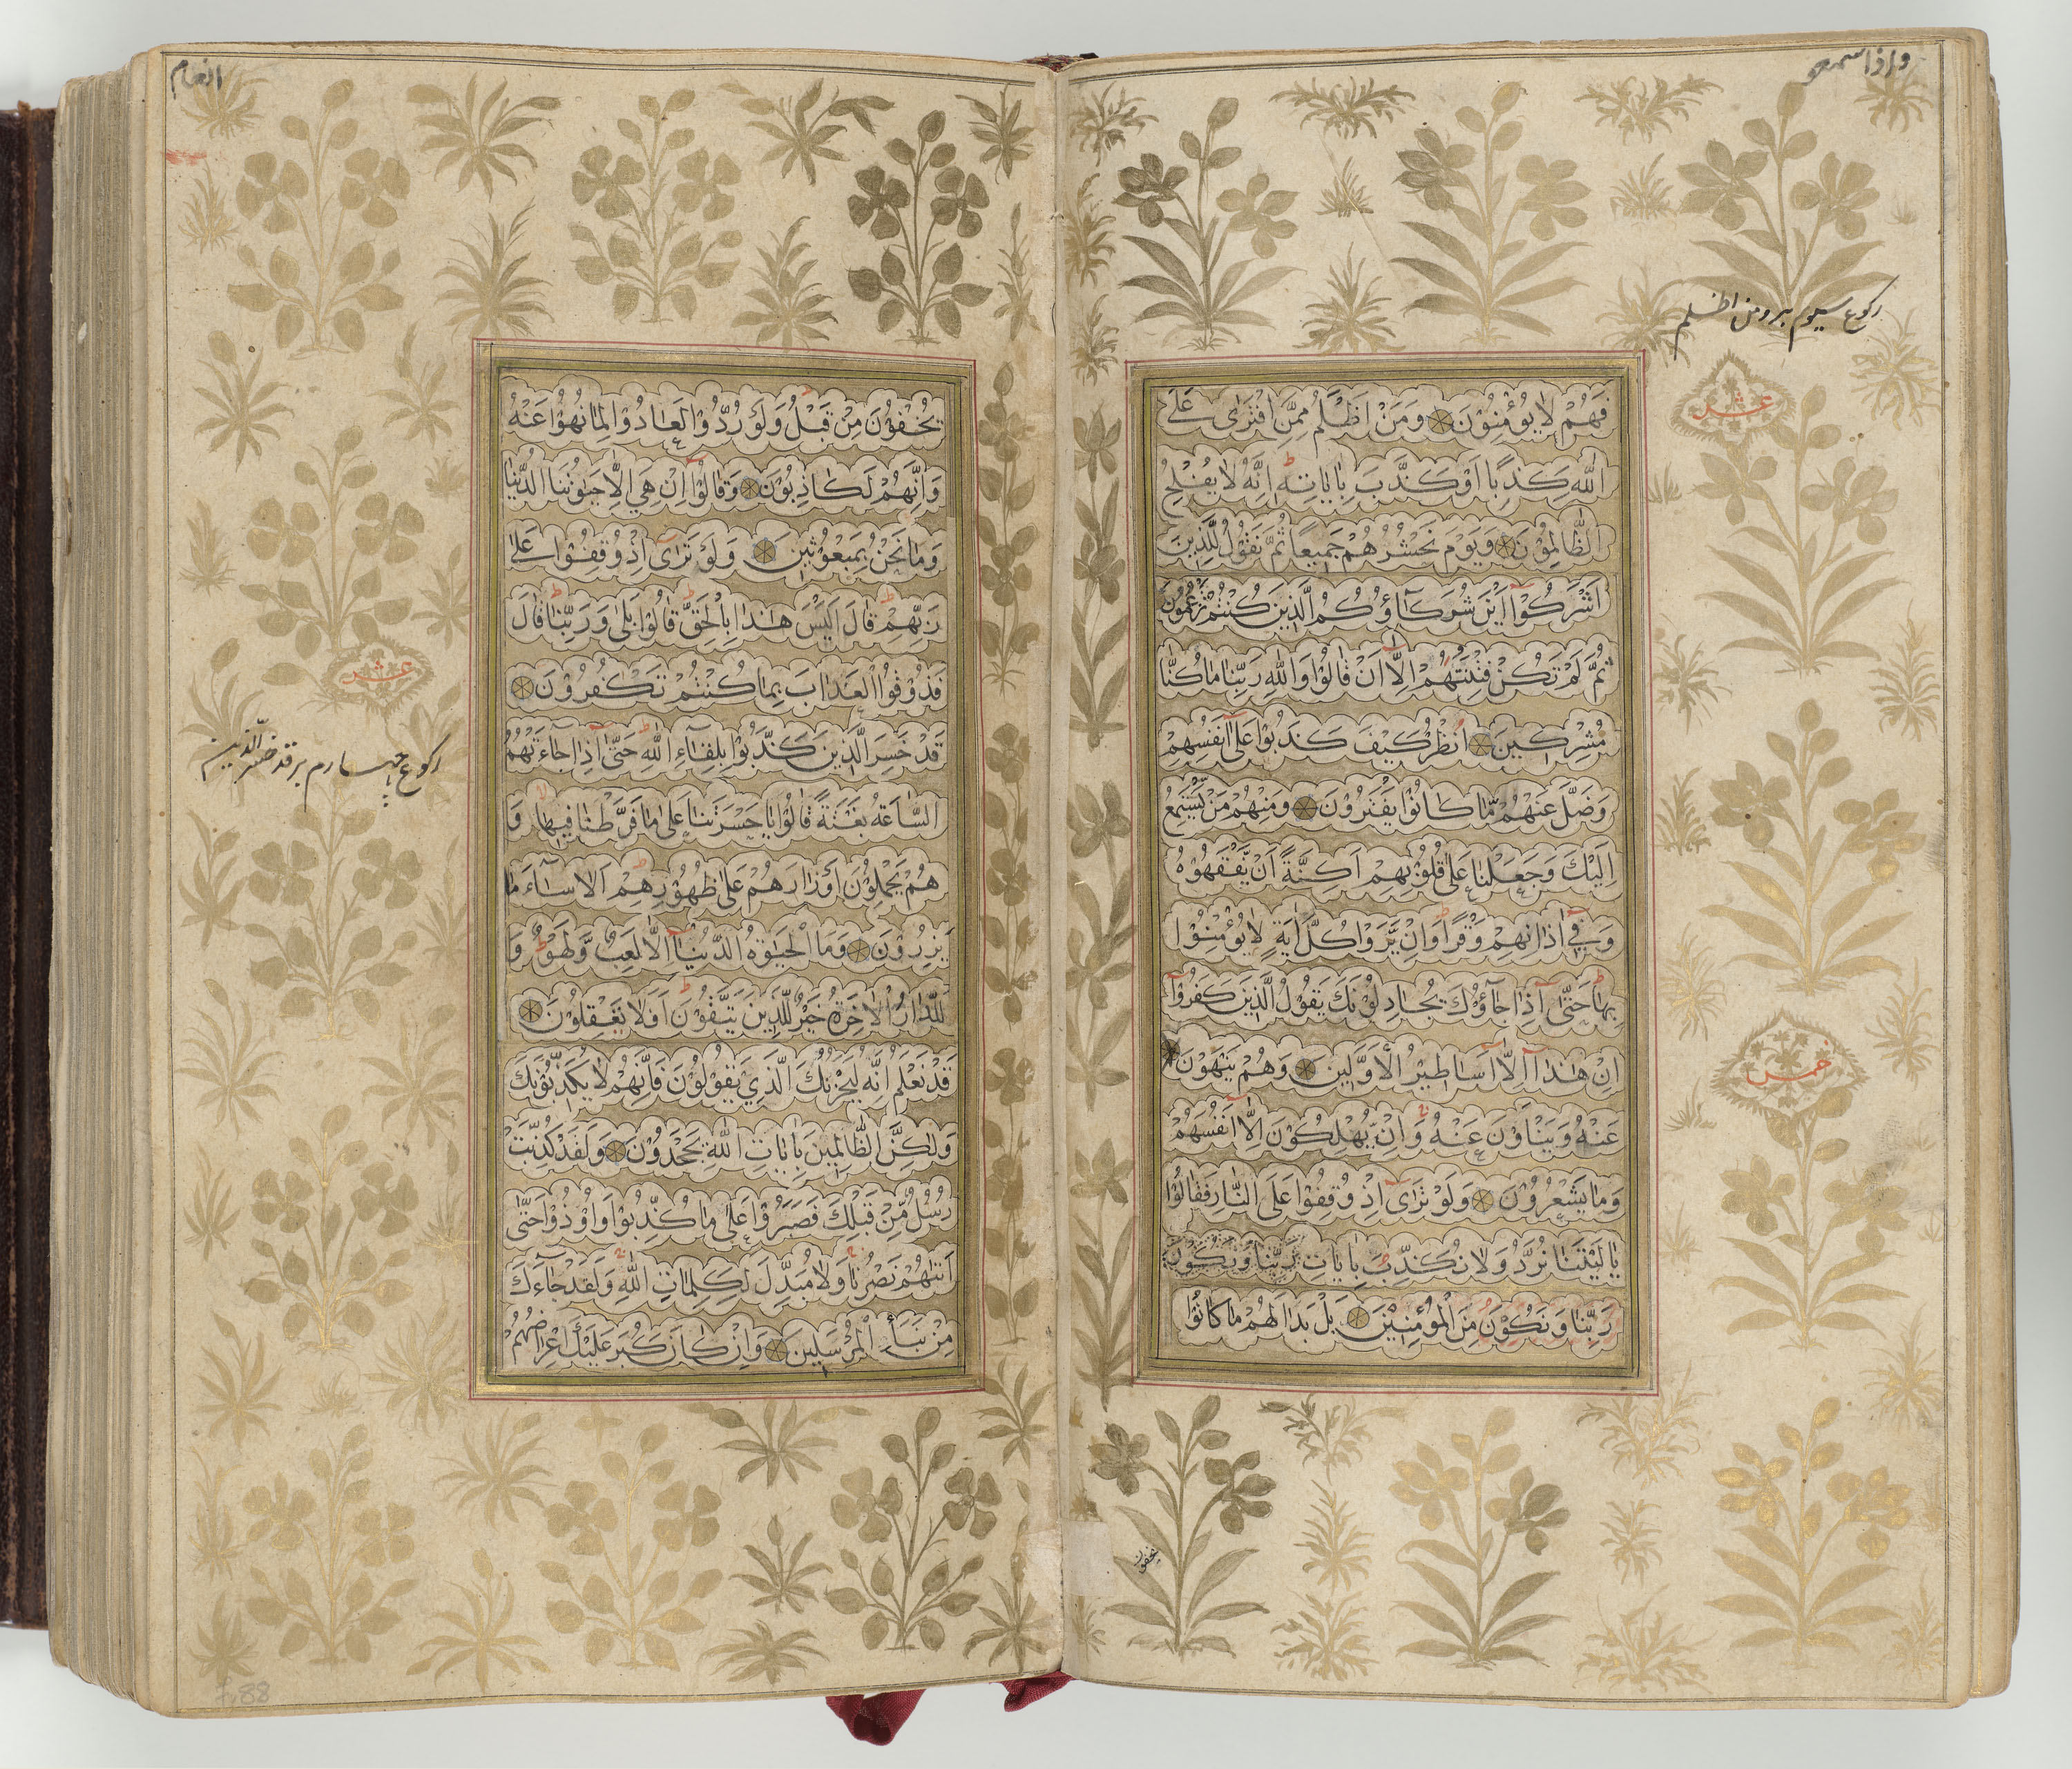 واذاسمعو
ركوع سيوم برومن اظلم
عشر
خمس
فَهُمْ لَا يُؤْمِنُوْنَ وَمَنْ اَظْلَمُ مِمَّنِ افْتَرٰى عَلَى
اللّٰهِ كَذِبًا اَوْ كَذَّبَ بِاٰيَاتِهٖ اِنَّهُ لَا يُفْلِحُ
الظَّالِمُوْنَ وَيَوْمَ نَحْشُرُهُمْ جَمِيعًا ثُمَّ نَقُوْلُ لِلَّذِينَ
اَشْرَكُوْا اَيْنَ شُرَكَآؤُكُمُ الَّذِينَ كُنْتُمْ تَزْعُمُوْنَ
ثُمَّ لَمْ تَكُنْ فِتْنَتُهُمْ اِلَّا اَنْ قَالُوْا وَاللّٰهِ رَبِّنَا مَا كُنَّا
مُشْرِكِينَ اُنْظُرْ كَيْفَ كَذَبُوْا عَلٰٓى اَنْفُسِهِمْ
وَضَلَّ عَنْهُمْ مَّا كَانُوْا يَفْتَرُوْنَ وَمِنْهُمْ مَنْ يَّسْتَمِعُ
اِلَيْكَ وَجَعَلْنَا عَلٰى قُلُوْبِهِمْ اَكِنَّةً اَنْ يَّفْقَهُوْهُ
وَفِيٓ اٰذَانِهِمْ وَقْرًا وَاِنْ يَّرَوْا كُلَّ اٰيَةٍ لَا يُؤْمِنُوْا
بِهَا حَتّٰٓى اِذَا جَآؤُكَ يُجَادِلُوْنَكَ يَقُوْلُ الَّذِينَ كَفَرُوْٓا
اِنْ هٰذَآ اِلَّآ اَسَاطِيْرُ الْاَوَّلِينَ وَهُمْ يَنْهَوْنَ
عَنْهُ وَيَنْاَوْنَ عَنْهُ وَاِنْ يُّهْلِكُوْنَ اِلَّآ اَنْفُسَهُمْ
وَمَا يَشْعُرُوْنَ وَلَوْ تَرٰٓى اِذْ وُقِفُوْا عَلَى النَّارِ فَقَالُوْا
يَا لَيْتَنَا نُرَدُّ وَلَا نُكَذِّبَ بِاٰيَاتِ رَبِّنَا وَنَكُوْنَ
رَبِّنَا وَنَكُوْنَ مِنَ الْمُؤْمِنِيْنَ بَلْ بَدَا لَهُمْ مَا كَانُوْا
يخفون
انعام
عشر
ركوع چهارم برقد خسر الذين
يُخْفُوْنَ مِنْ قَبْلُ وَلَوْ رُدُّوْا لَعَادُوْا لِمَا نُهُوْا عَنْهُ
وَاِنَّهُمْ لَكَاذِبُوْنَ وَقَالُوْٓا اِنْ هِيَ اِلَّا حَيٰوتُنَا الدُّنْيَا
وَمَا نَحْنُ بِمَبْعُوْثِينَ وَلَوْ تَرٰٓى اِذْ وُقِفُوْا عَلٰى
رَبِّهِمْ قَالَ اَلَيْسَ هٰذَا بِالْحَقِّ قَالُوْا بَلٰى وَرَبِّنَا قَالَ
فَذُوْقُوا الْعَذَابَ بِمَا كُنْتُمْ تَكْفُرُوْنَ
قَدْ خَسِرَ الَّذِينَ كَذَّبُوْا بِلِقَآءِ اللّٰهِ حَتّٰٓى اِذَا جَآءَتْهُمُ
السَّاعَةُ بَغْتَةً قَالُوْا يَا حَسْرَتَنَا عَلٰى مَا فَرَّطْنَا فِيهَا وَ
هُمْ يَحْمِلُوْنَ اَوْزَارَهُمْ عَلٰى ظُهُوْرِهِمْ اَلَا سَآءَ مَا
يَزِرُوْنَ وَمَا الْحَيٰوةُ الدُّنْيَآ اِلَّا لَعِبٌ وَّلَهْوٌ وَ
لَلدَّارُ الْاٰخِرَةُ خَيْرٌ لِّلَّذِينَ يَتَّقُوْنَ اَفَلَا تَعْقِلُوْنَ
قَدْ نَعْلَمُ اِنَّهُ لَيَحْزُنُكَ الَّذِي يَقُوْلُوْنَ فَاِنَّهُمْ لَا يُكَذِّبُوْنَكَ
وَلٰكِنَّ الظَّالِمِينَ بِاٰيَاتِ اللّٰهِ يَجْحَدُوْنَ وَلَقَدْ كُذِّبَتْ
رُسُلٌ مِّنْ قَبْلِكَ فَصَبَرُوْا عَلٰى مَا كُذِّبُوْا وَاُوْذُوْا حَتّٰٓى
اَتٰهُمْ نَصْرُنَا وَلَا مُبَدِّلَ لِكَلِمَاتِ اللّٰهِ وَلَقَدْ جَآءَكَ
مِنْ نَبَاِ الْمُرْسَلِينَ وَاِنْ كَانَ كَبُرَ عَلَيْكَ اِعْرَاضُهُمْ
f.88